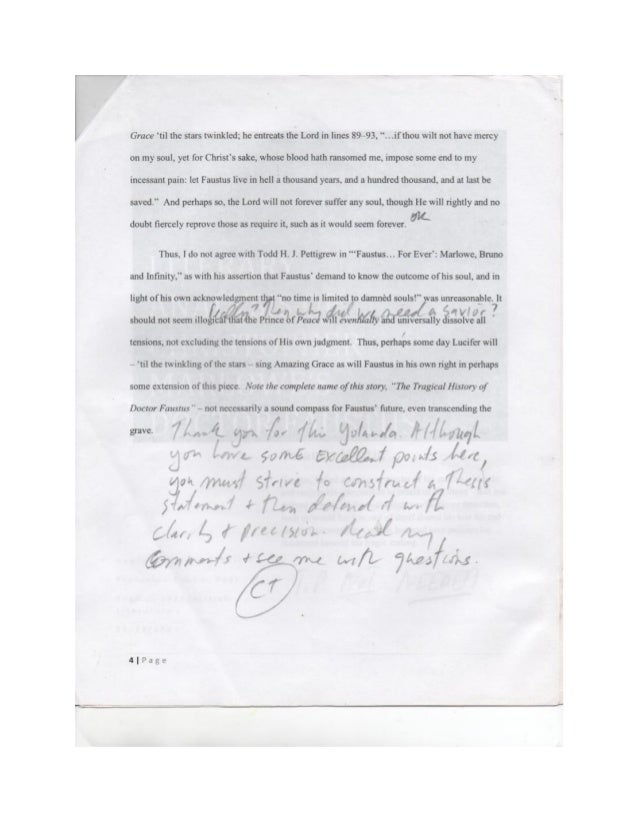 Grace 'til the stars twinkled; he entreats the Lord in lines 89-93, "…if thou wilt not have mercy
on my soul, yet for Christ's sake, whose blood hath ransomed me, impose some end to my
incessant pain: let Faustus live in hell a thousand years, and a hundred thousand, and at last be
saved." And perhaps so, the Lord will not forever suffer any soul, though He will rightly and no
doubt fiercely reprove those as require it, such as it would seem forever.
Thus, I do not agree with Todd H. J. Pettigrew in "'Faustus… For Ever': Marlowe, Bruno
and Infinity," as with his assertion that Faustus' demand to know the outcome of his soul, and in
light of his own acknowledgment that "no time is limited to damnèd souls!" was unreasonable. It
Really? Then why did we need a Savior?
should not seem illogical that the Prince of Peace will eventually and universally dissolve all
tensions, not excluding the tensions of His own judgment. Thus, perhaps some day Lucifer will
– 'til the twinkling of the stars – sing Amazing Grace as will Faustus in his own right in perhaps
some extension of this piece. Note the complete name of this story, "The Tragical History of
Doctor Faustus" – not necessarily a sound compass for Faustus' future, even transcending the
grave.
Thank you for this Yolanda. Although
you have some excellent points here,
you must strive to construct a Thesis
statement + then defend it with
clarity + precision. Read my
comments + see me with questions.
C+
4 | Page